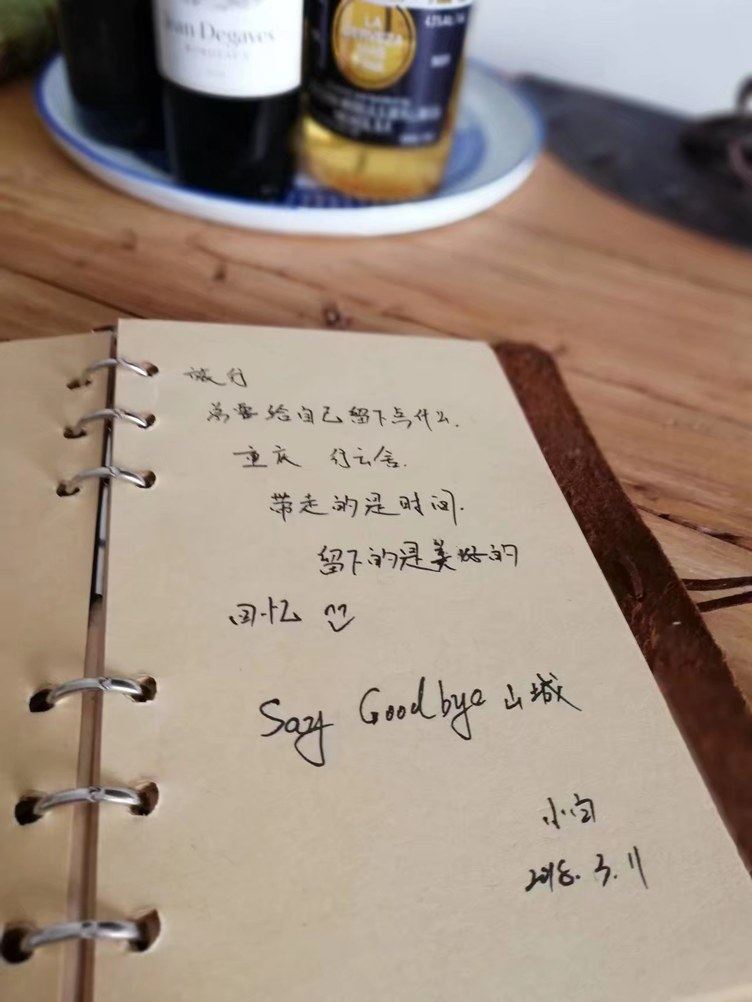 Jean Degaves
BORDEAUX
LA
CERVEZA
旅行
总要给自己留下点什么.
重庆 行云舍.
带走的是时间.
留下的是美好的
回忆
Say Goodbye 山城
小白
2018.3.11